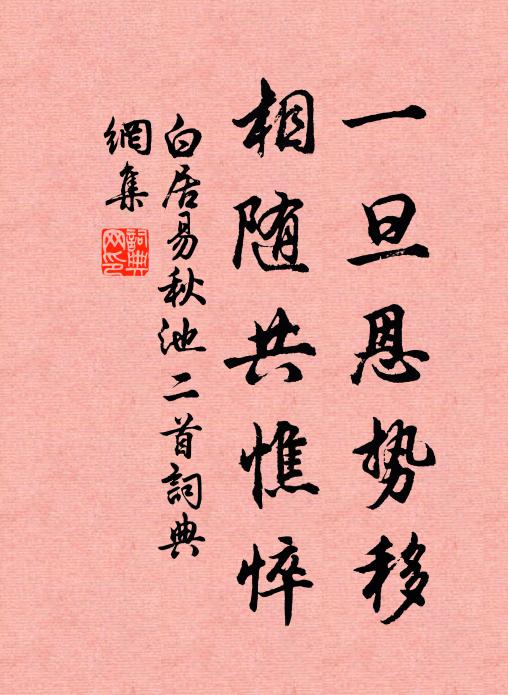 一旦恩势移
相随共憔悴
白居易秋池二首詞典
網集
詞典網印